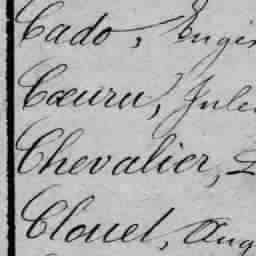 Cado, Eugè
Cœuru, Jule
Chevalier,
Clouet, Aug